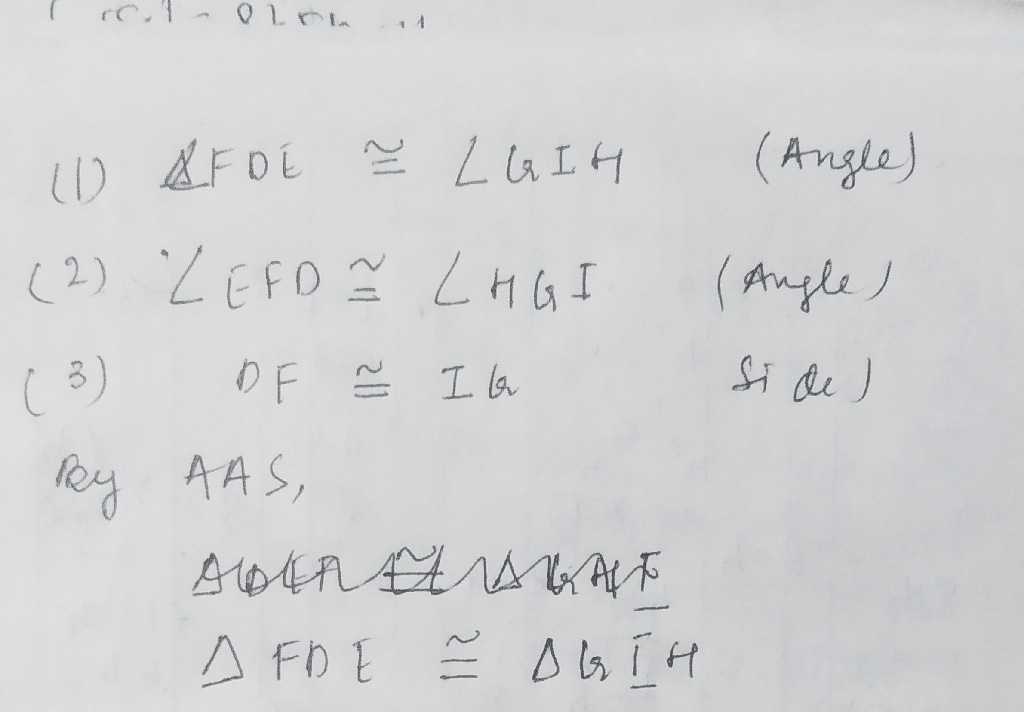 (1) ∠FDE ≅ ∠GIH (Angle)
(2) ∠EFD ≅ ∠HGI (Angle)
(3) DF ≅ IG Side)
By AAS,
Δ FDE ≅ ΔGIH